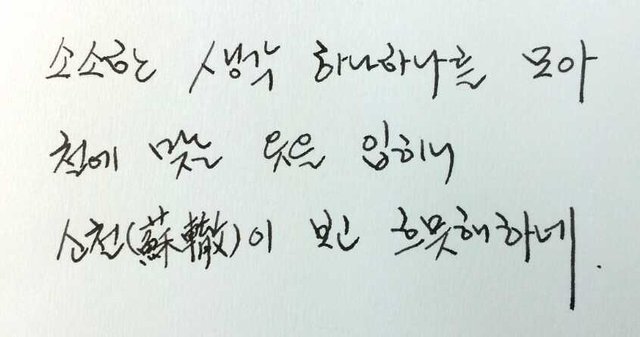 소소한 생각 하나하나를 모아
철에 맞는 옷을 입히니
소철(蘇轍)이 보고 흐뭇해하네.